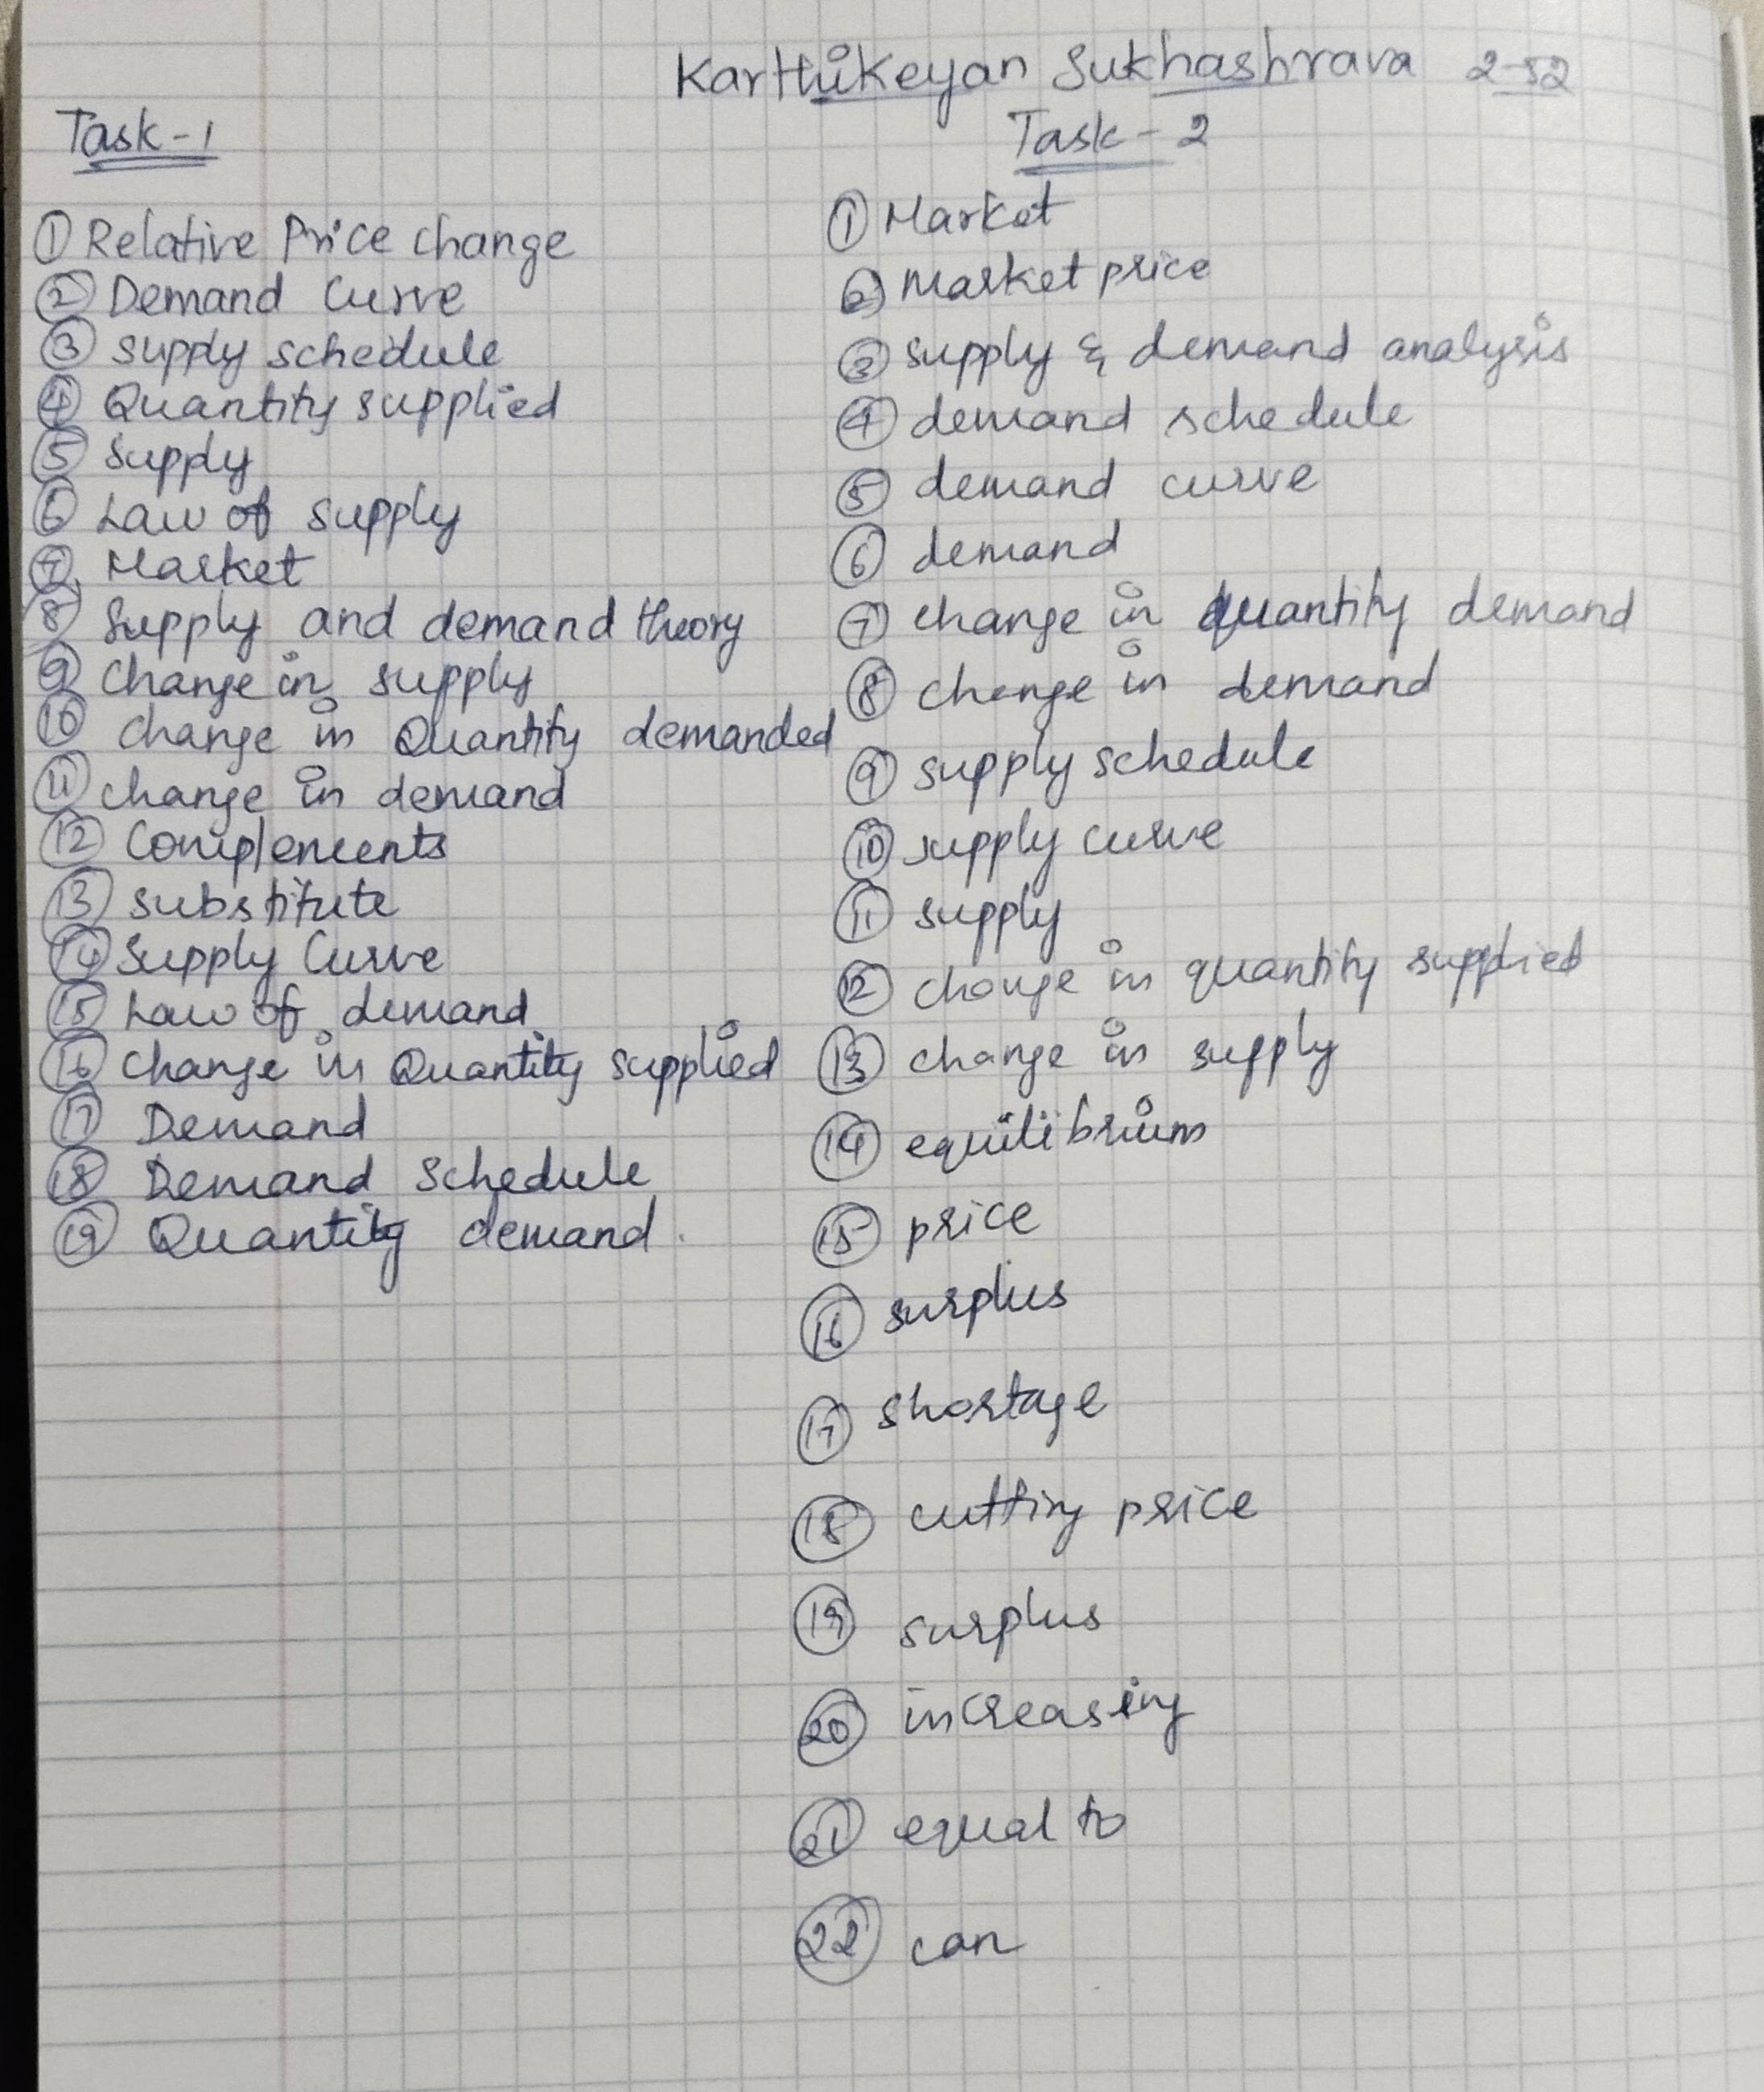 Karthikeyan Sukhashrava 2-52
Task-1
① Relative Price change
② Demand Curve
③ supply schedule
④ Quantity supplied
⑤ supply
⑥ Law of supply
⑦ Market
⑧ supply and demand theory
⑨ change in supply
⑩ change in Quantity demanded
⑪ change in demand
⑫ Complements
⑬ substitute
⑭ Supply Curve
⑮ Law of demand
⑯ change in Quantity supplied
⑰ Demand
⑱ Demand Schedule
⑲ Quantity demand.
Task-2
① Market
② Market price
③ supply & demand analysis
④ demand schedule
⑤ demand curve
⑥ demand
⑦ change in quantity demand
⑧ change in demand
⑨ supply schedule
⑩ supply curve
⑪ supply
⑫ change in quantity supplied
⑬ change in supply
⑭ equilibrium
⑮ price
⑯ surplus
⑰ shortage
⑱ cutting price
⑲ surplus
⑳ increasing
㉑ equal to
㉒ can